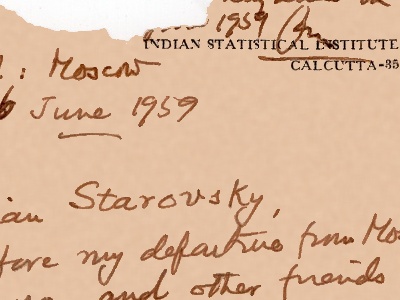 1959
INDIAN STATISTICAL INSTITUTE
CALCUTTA-35
: Moscow
6 June 1959
ian Starovsky,
fore my departure from Mos
and other friends